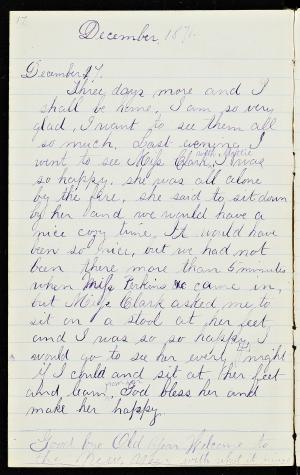 17.
December, 187
December 17.
Three days more and I
shall be home, I am so very
glad, I want to see them all
so much, Last evening I
went to see Miss Clark, with I was
so happy, she was all alone
by the fire, she said to sit down
by her and we would have a
nice cozy time, It would have
been so nice, but we had not
been there more than 5 minutes
when Miss Perkins came in,
but Miss Clark asked me to
sit on a stool at her feet
and I was so so happy, I
would go to see her every night
if I could and sit at her feet
and learn, God bless her and
make her happy.
Good bye Old Year Welcome to
the New Year with